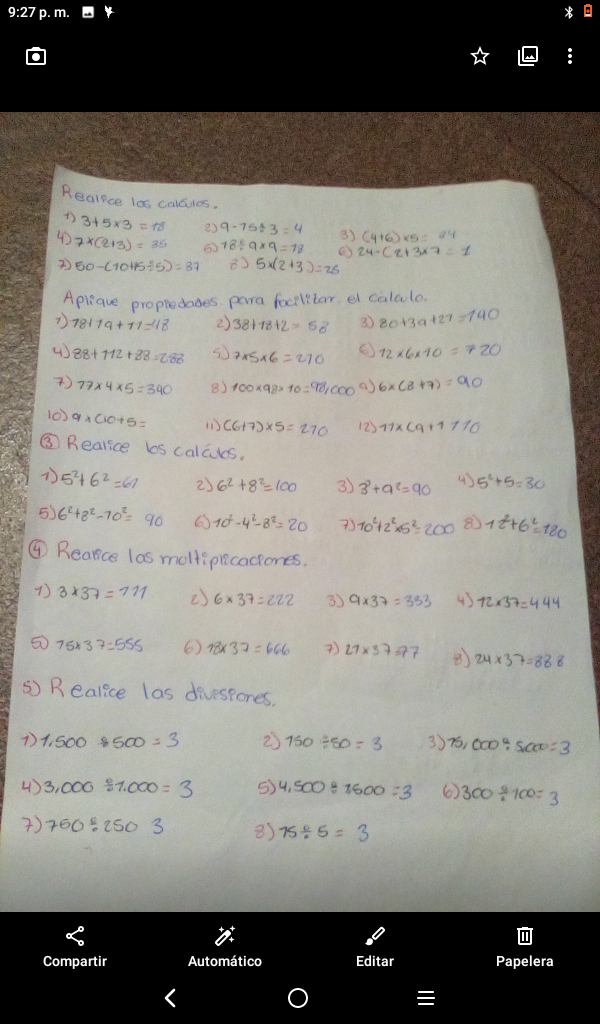 9:27 p. m.
Realice los calculos.
1) 3+5x3 = 18 2) 9-15÷3 = 4 3) (4+6)x5=
4) 7x(2+3) = 35 5) 18÷9x9 = 18 6) 24-(2+3x7 = 1
7) 50-(10+15÷5) = 37 8) 5x(2+3) = 25
Aplique propiedades para facilitar el calculo.
1) 18+19+11=48 2) 38+18+2= 58 3) 80+39+21=140
4) 88+112+88=288 5) 7x5x6 = 210 6) 12x6x10 = 720
7) 17x4x5=340 8) 100x98x10=98,000 9) 6x(8+7) = 90
10) 9x(10+5= 11) (6+7)x5= 210 12) 11x(9+1 110
③ Realice los calculos.
1) 5²+6²=61 2) 6²+8²=100 3) 3²+9²=90 4) 5²+5=30
5) 6²+8²-10²= 90 6) 10²-4²-8²=20 7) 10²+2²x5²=200 8) 12²+6²=180
④ Realice las moltiplicaciones.
1) 3x37=111 2) 6x37=222 3) 9x37=333 4) 12x37=444
5) 15x37=555 6) 18x37=666 7) 21x37=77 8) 24x37=888
5) Realice las divisiones.
1) 1,500 ÷500 = 3 2) 150 ÷50 = 3 3) 15,000÷5,000=3
4) 3,000 ÷1.000= 3 5) 4,500÷1500 =3 6) 300÷100= 3
7) 750÷250 3 8) 15÷5 = 3
Compartir Automático Editar Papelera